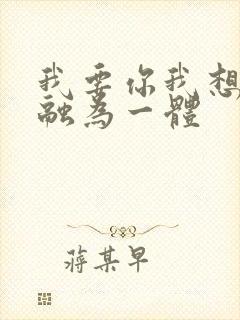 我要你我想
融為一體
蔣某早